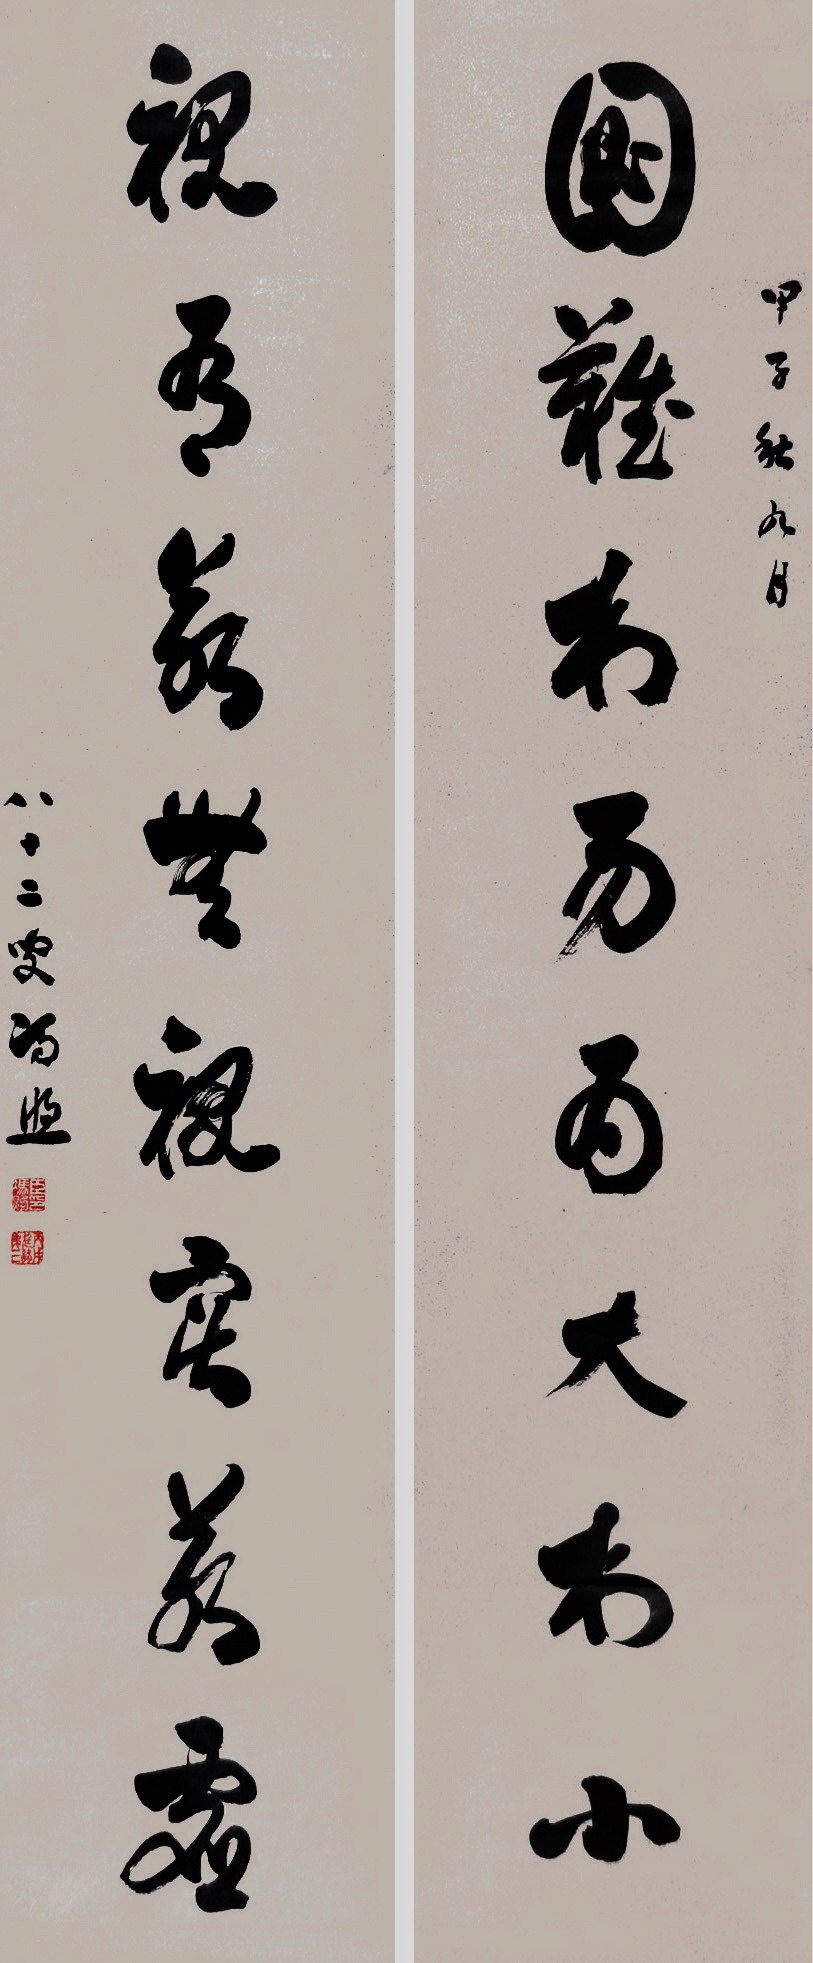 甲子秋九月
圖難於易為大於小
視有若無視實若虛
八十二叟馮煦